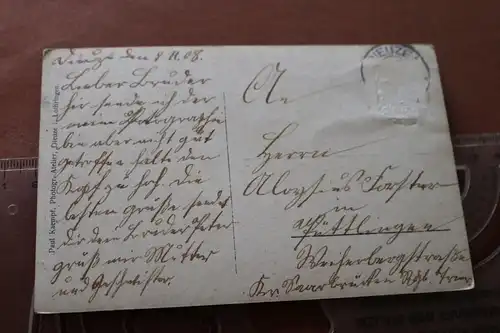 Dieuze den 9 11. 08.
Lieber Bruder
hir sende ich der
mein Fotografie
bin aber nicht gut
getroffen halte den
Kopf zu hoch. Die
besten grüsse sendet
dir dein Bruder Peter
gruß mir Mutter
und Geschwister.
Paul Kaempf, Photogr. Atelier, Dieuze i. Lothringen
DIEUZE
An
Herrn
Aloysius Forster
in
Püttlingen
Weiherbergstraße
Kr. Saarbrücken Rgb. Trier